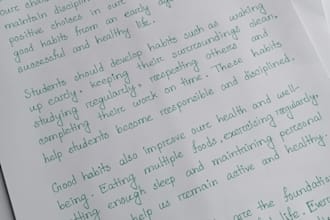 our cha
maintain disciplin
positive choices in our
good habits from an early ag
successful and healthy life.
Students should develop habits such as waking
up early, keeping their surroundings clean,
studying regularly, respecting others and
completing their work on time. These habits
help students become responsible and disciplined.
Good habits also improve our health and well-
being. Eating multiple foods, exercising regularly,
tting enough sleep and maintaining personal
help us remain active and healthy
are the foundation
life. Ever